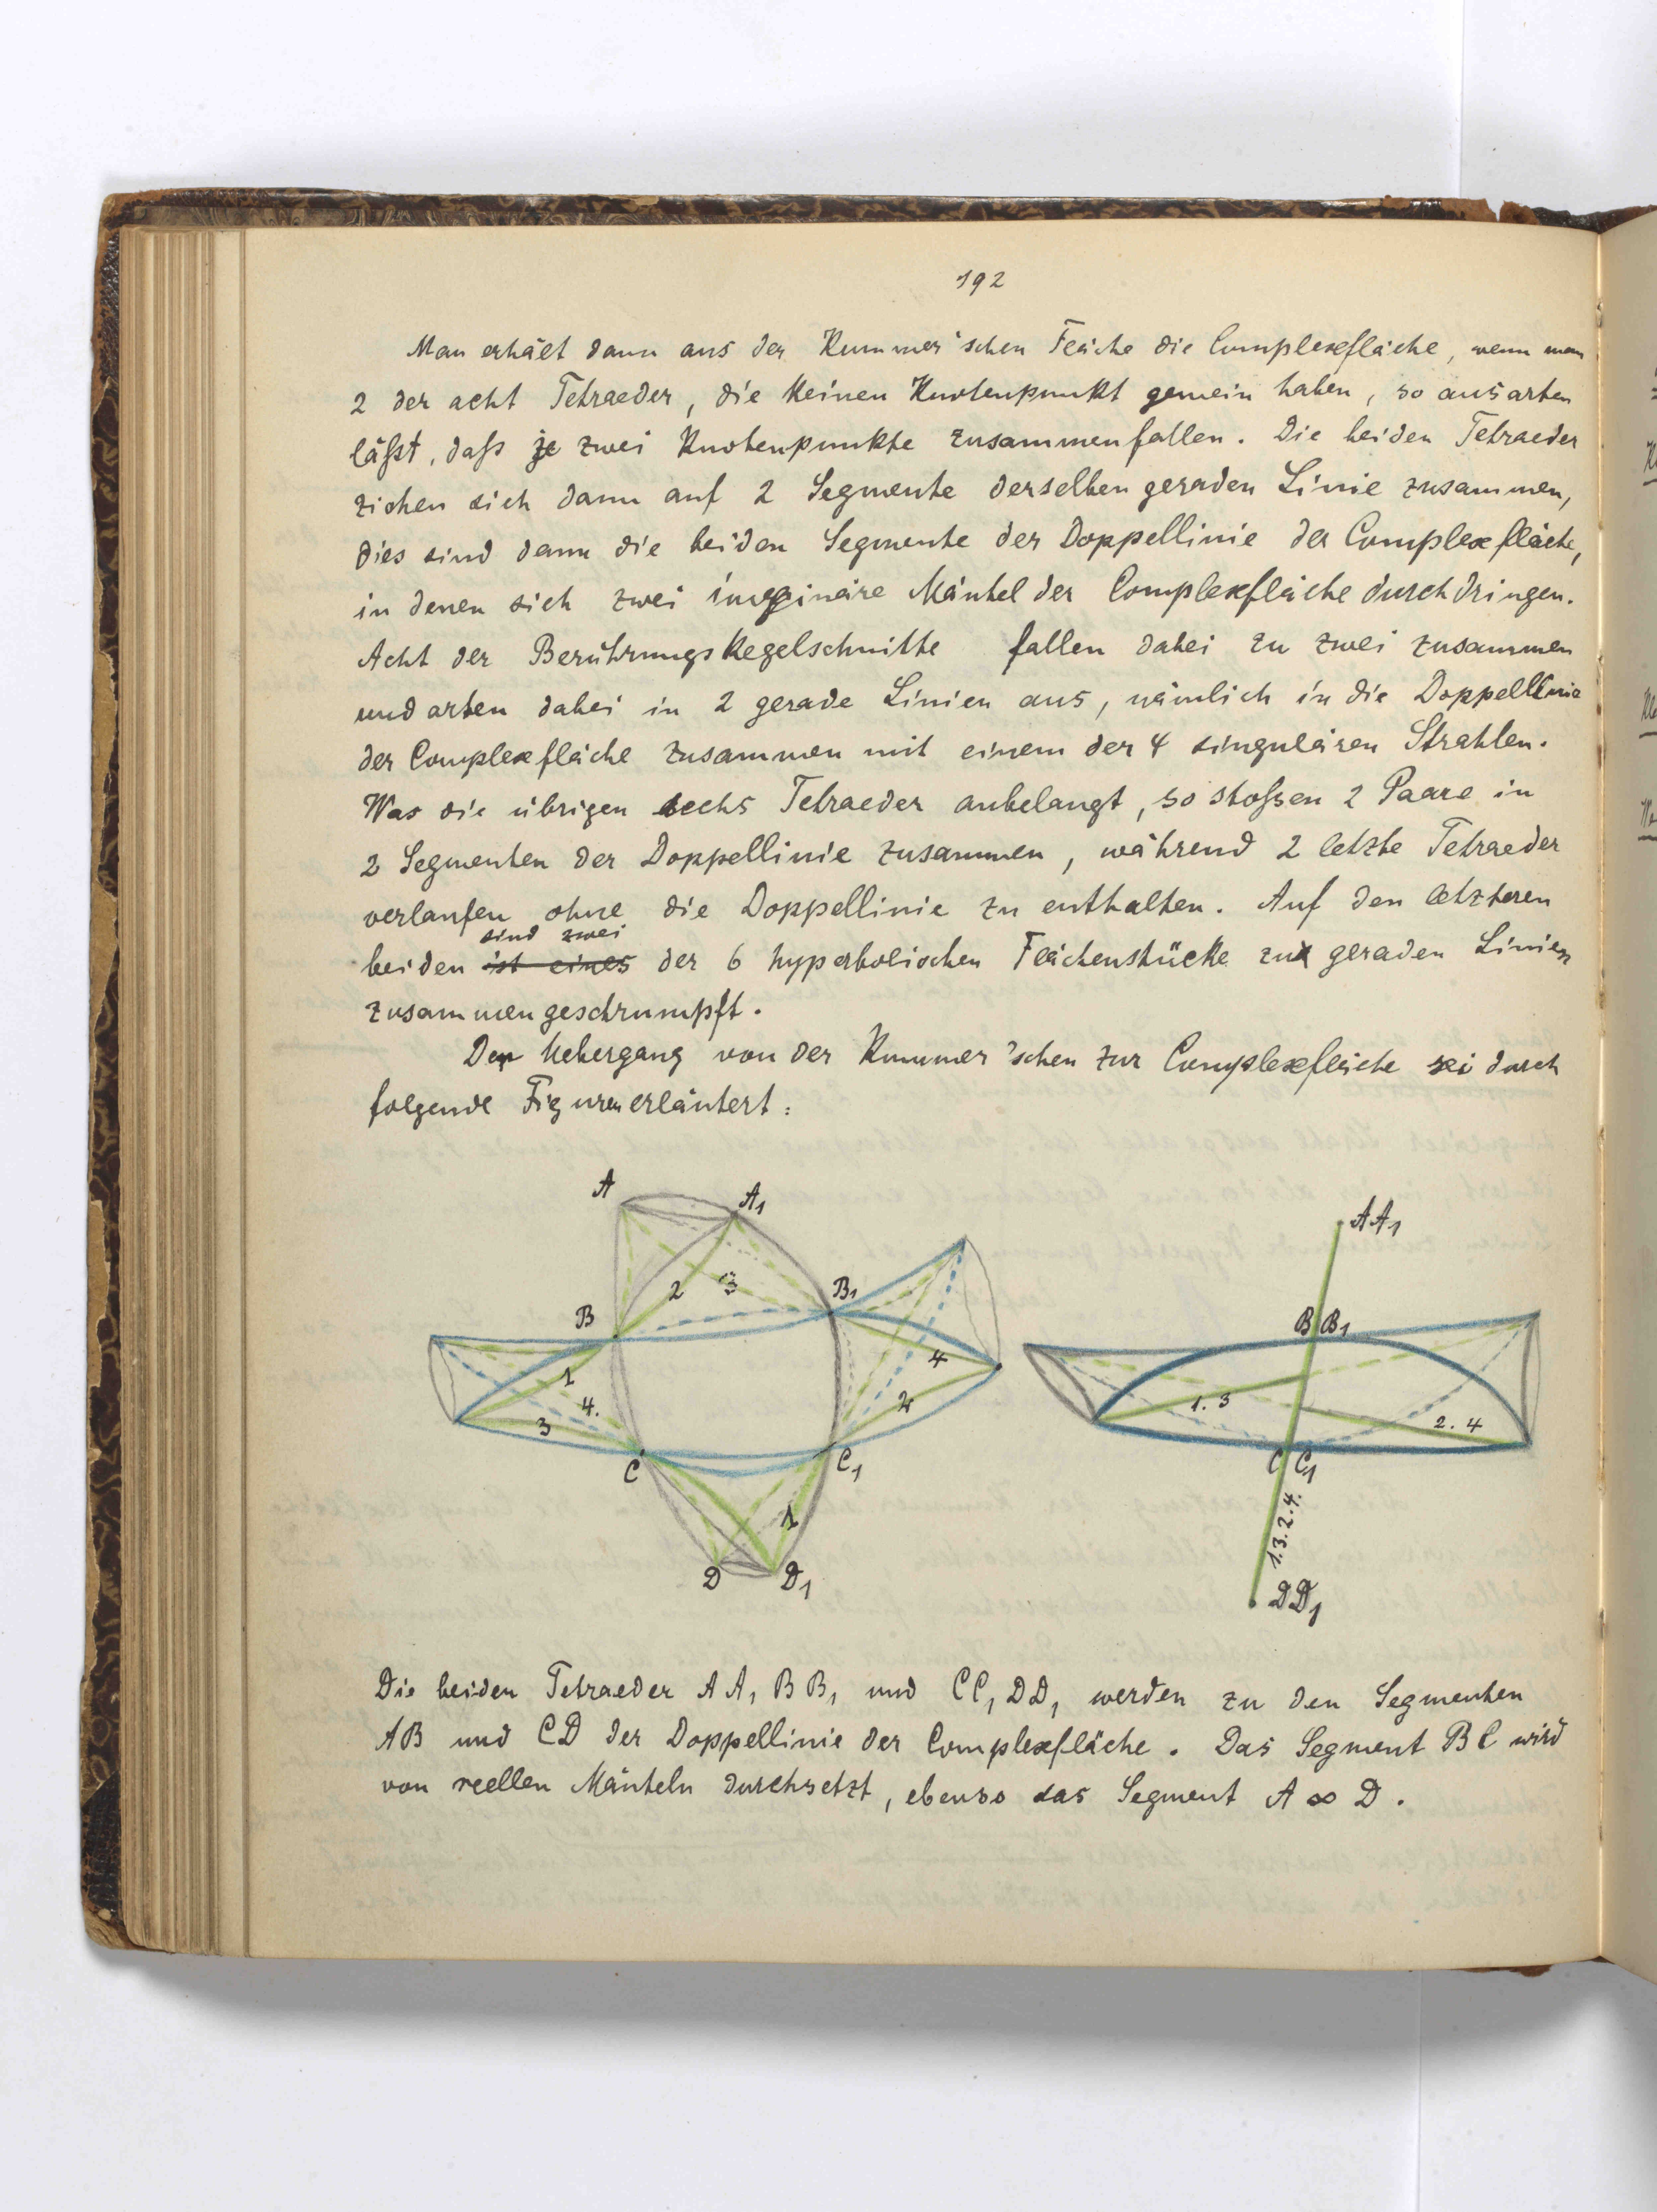 192
Man erhält dann aus der Kummer'schen Fläche die Complexfläche, wenn man
2 der acht Tetraeder, die keinen Knotenpunkt gemein haben, so ausarten
läßt, daß je zwei Knotenpunkte zusammenfallen. Die beiden Tetraeder
ziehen sich dann auf 2 Segmente derselben geraden Linie zusammen,
dies sind dann die beiden Segmente der Doppellinie der Complexfläche,
in denen sich zwei imaginäre Mäntel der Complexfläche durchdringen.
Acht der Berührungskegelschnitte fallen dabei zu zwei zusammen
und arten dabei in 2 gerade Linien aus, nämlich in die Doppellinie
der Complexfläche zusammen mit einem der 4 singulären Strahlen.
Was die übrigen sechs Tetraeder anbelangt, so stoßen 2 Paare in
2 Segmenten der Doppellinie zusammen, während 2 letzte Tetraeder
verlaufen ohne die Doppellinie zu enthalten. Auf den letzteren
sind zwei
beiden ist eines der 6 hyperbolischen Flächenstücke zu geraden Linien
zusammengeschrumpft.
Der Uebergang von der Kummer'schen zur Complexfläche sei durch
folgende Figuren erläutert:
A A1
2 3
B B1
1 4
4. 2
3
C C1
1
D D1
AA1
B B1
1. 3
2. 4
C C1
1.3.2.4.
DD1
Die beiden Tetraeder AA1 BB1 und CC1 DD1 werden zu den Segmenten
AB und CD der Doppellinie der Complexfläche. Das Segment BC wird
von reellen Mänteln durchsetzt, ebenso das Segment A ∞ D.